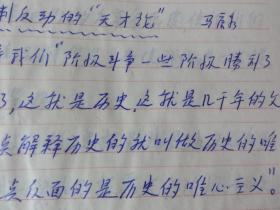 制反动的"天才论"
我们"阶级斗争一些阶级胜利了
了,这就是历史,这就是几千年的文
点解释历史的就叫做历史的唯
点反面的是历史的唯心主义"。